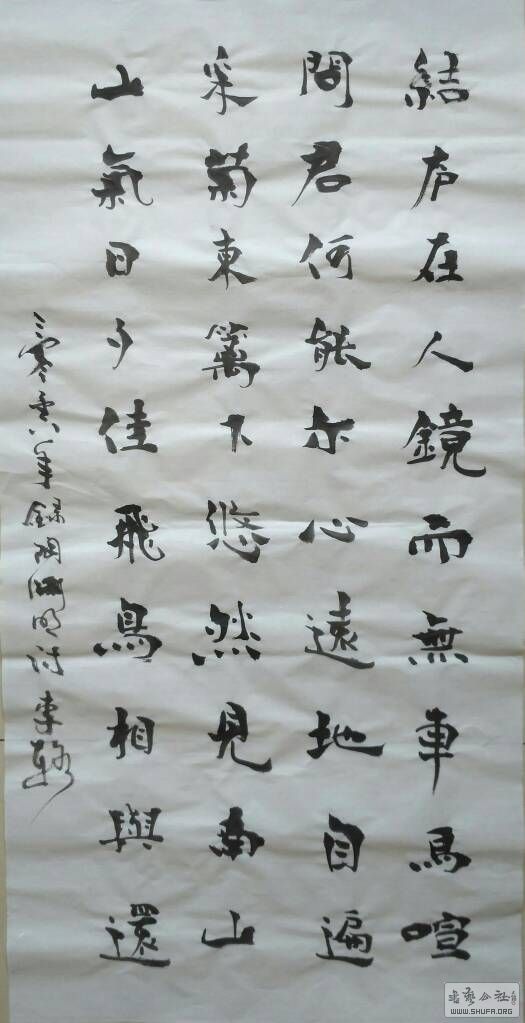 結庐在人鏡而無車馬喧
問君何能尔心遠地自遍
采菊東篱下悠然見南山
山氣日夕佳飛鳥相與還
二零零八年録陶渊明诗李
书艺公社
WWW.SHUFA.ORG